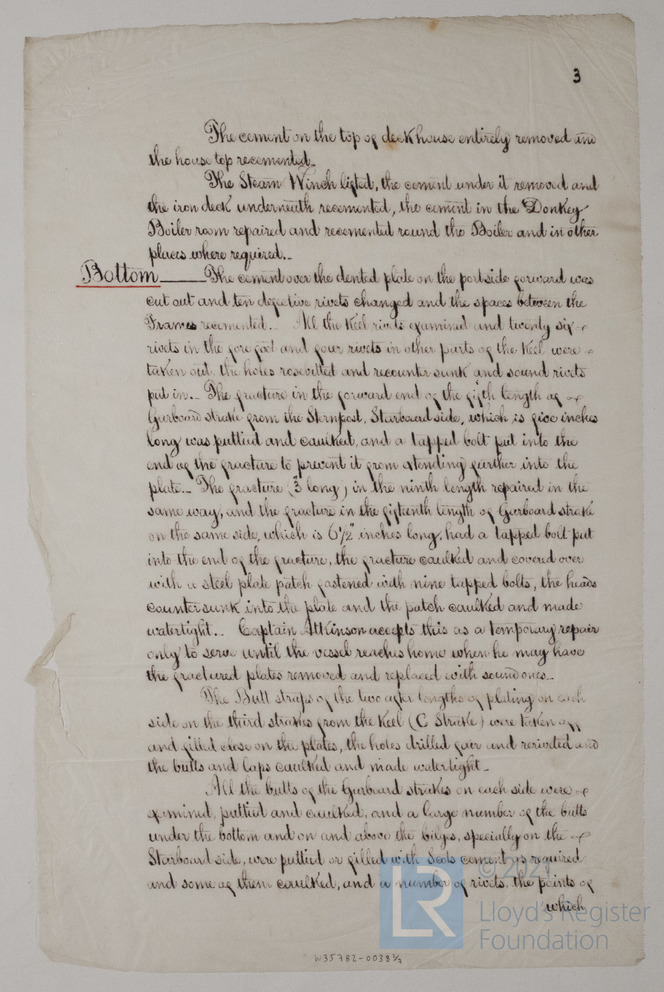 3
The cement on the top of deck house entirely removed and
the house top recemented_
The Steam Winch lifted, the cement under it removed and
the iron deck underneath recemented, the cement in the Donkey
Boiler room repaired and recemented round the Boiler and in other
places where required._
Bottom ____ The cement over the dented plate on the port side forward was
cut out and ten defective rivets changed and the spaces between the
Frames recemented._ All the Keel rivets examined and twenty six
rivets in the fore foot and four rivets in other parts of the Keel were
taken out, the holes rosevetted and recounter sunk and sound rivets
put in._ The fracture in the forward end of the fifth length of
Garboard strake from the Sternpost, Starboard side, which is five inches
long was puttied and caulked, and a tapped bolt put into the
end of the fracture to prevent it from extending further into the
plate._ The fracture (3" long) in the ninth length repaired in the
same way, and the fracture in the fifteenth length of Garboard strake
on the same side, which is 6½" inches long, had a tapped bolt put
into the end of the fracture, the fracture caulked and covered over
with a steel plate patch fastened with nine tapped bolts, the heads
countersunk into the plate and the patch caulked and made
watertight._ Captain Atkinson accepts this as a temporary repair
only to serve until the vessel reaches home when he may have
the fractured plates removed and replaced with sound ones._
The Butt straps of the two after lengths of plating on each
side on the third strakes from the Keel (C Strake) were taken off
and filled close on the plates, the holes drilled fair and reriveted and
the butts and laps caulked and made watertight_
All the butts of the Garboard strakes on each side were
examined, puttied and caulked, and a large number of the butts
under the bottom and on and above the bilges, specially on the
Starboard side, were puttied or filled with cement as required
and some of them caulked, and a number of rivets, the points of
which
© 2021
LR
Lloyd's Register
Foundation
W35782-0038 3/7